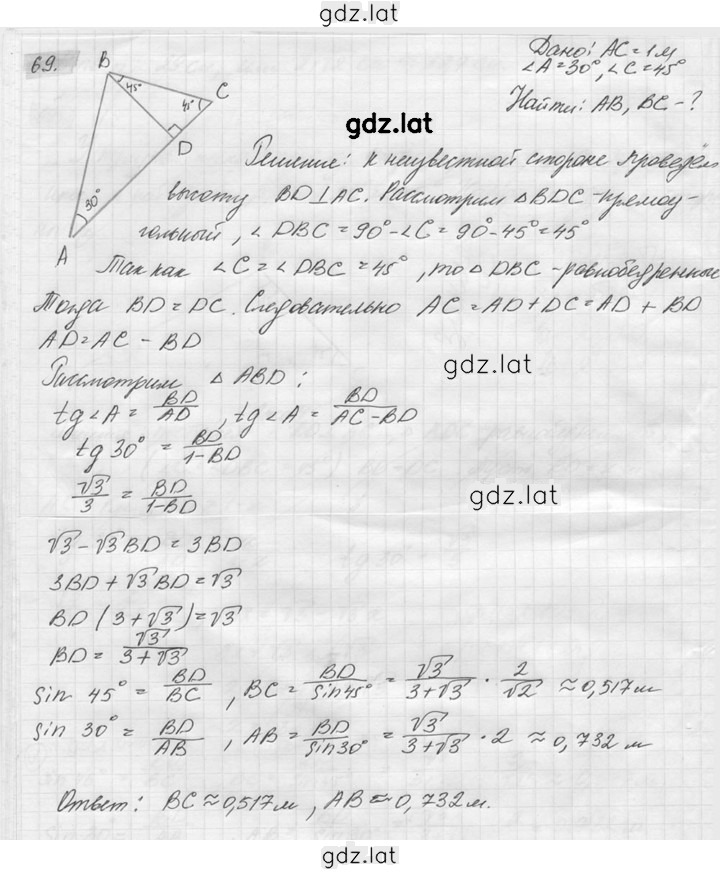 gdz.lat
69.
Дано: AC=1м
∠A=30°, ∠C=45°
Найти: AB, BC-?
B
45°
45°
C
D
30°
A
gdz.lat
Решение: к неизвестной стороне проведём
высоту BD⊥AC. Рассмотрим △BDC-прямоу-
гольный, ∠DBC=90°-∠C=90°-45°=45°
Так как ∠C=∠DBC=45°, то △DBC-равнобедренные
Тогда BD=DC. Следовательно AC=AD+DC=AD+BD
AD=AC-BD
gdz.lat
Рассмотрим △ABD:
tg∠A = BD/AD, tg∠A = BD/(AC-BD)
tg 30° = BD/(1-BD)
√3/3 = BD/(1-BD)
gdz.lat
√3-√3BD=3BD
3BD+√3BD=√3
BD(3+√3)=√3
BD= √3/(3+√3)
Sin 45° = BD/BC, BC = BD/Sin45° = √3/(3+√3) · 2/√2 ≈0,517м
Sin 30° = BD/AB, AB = BD/Sin30° = √3/(3+√3) · 2 ≈0,732 м
Ответ: BC≈0,517м, AB≈0,732м.
gdz.lat